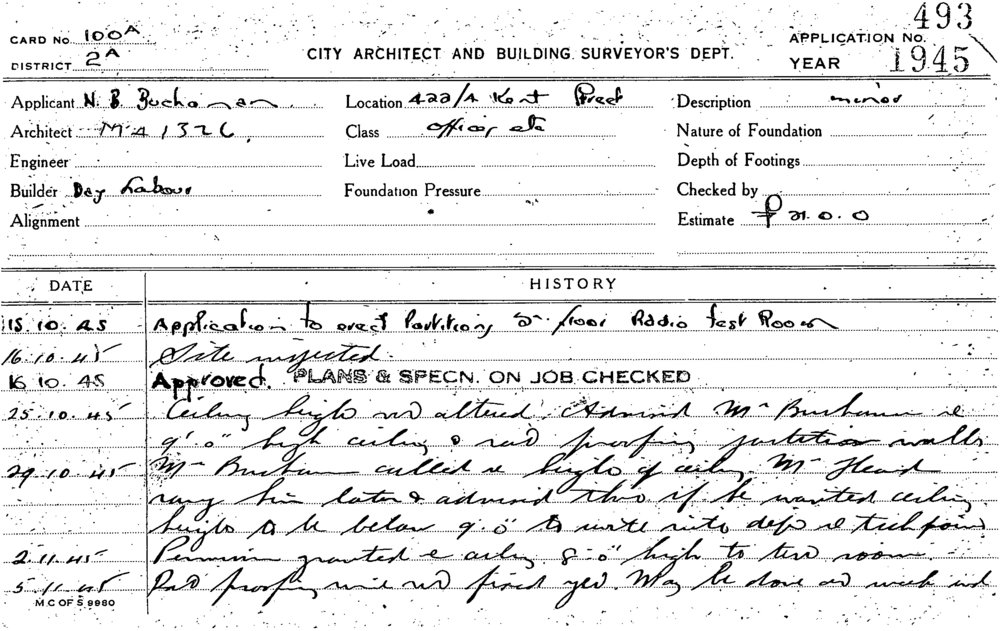 493
CARD No. 100A
APPLICATION No.
DISTRICT 2A
CITY ARCHITECT AND BUILDING SURVEYOR'S DEPT.
YEAR 1945
Applicant N. B. Buchanan Location 422/4 Kent Street Description minor
Architect MA 1326 Class offices etc Nature of Foundation
Engineer Live Load Depth of Footings
Builder Day Labour Foundation Pressure Checked by
Alignment Estimate £ 21.0.0
DATE HISTORY
15.10.45 Application to erect Partitions floor Radio Test Room
16.10.45 Site inspected.
16.10.45 Approved. PLANS & SPECN. ON JOB CHECKED
25.10.45 Ceiling height not altered. Advised Mr Buchanan re
9'.0" high ceiling & rat proofing partition walls
29.10.45 Mr Buchanan called re height of ceiling. Mr
rang him later & advised that if he wanted ceiling
height to be below 9'.0" to write into dept re
2.11.45 Permission granted ceiling 8'.0" high to test room.
5.11.45 Rat proofing not fixed yet. May be done at week end
M C OF S 9980